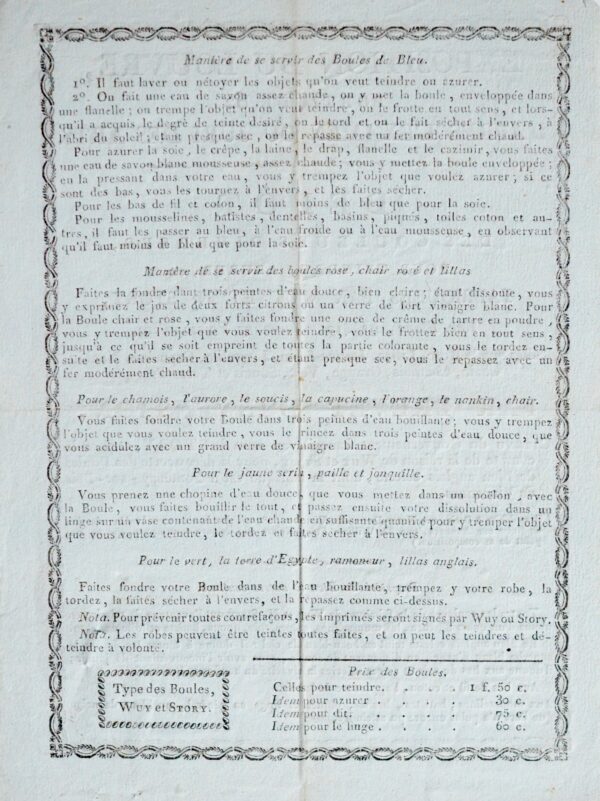 Manière de se servir des Boules de Bleu.
1º. Il faut laver ou nétoyer les objets qu'on veut teindre ou azurer.
2º. On fait une eau de savon assez chaude, on y met la boule, enveloppée dans
une flanelle; on trempe l'objet qu'on veut teindre, on le frotte en tout sens, et lors-
qu'il a acquis le degré de teinte desiré, on le tord et on le fait sécher à l'envers, à
l'abri du soleil; étant presque sec, on le repasse avec un fer modérément chaud.
Pour azurer la soie, le crêpe, la laine, le drap, flanelle et le cazimir, vous faites
une eau de savon blanc mousseuse, assez chaude; vous y mettez la boule enveloppée;
en la pressant dans votre eau, vous y trempez l'objet que voulez azurer; si ce
sont des bas, vous les tournez à l'envers, et les faites sécher.
Pour les bas de fil et coton, il faut moins de bleu que pour la soie.
Pour les mousselines, batistes, dentelles, basins, piqués, toiles coton et au-
tres, il faut les passer au bleu, à l'eau froide ou à l'eau mousseuse, en observant
qu'il faut moins de bleu que pour la soie.
Manière de se servir des boules rose, chair rosé et lillas
Faites la fondre dant trois peintes d'eau douce, bien claire; étant dissoute, vous
y exprimez le jus de deux forts citrons ou un verre de fort vinaigre blanc. Pour
la Boule chair et rose, vous y faites fondre une once de crême de tartre en poudre,
vous y trempez l'objet que vous voulez teindre, vous le frottez bien en tout sens,
jusqu'à ce qu'il se soit empreint de toutes la partie colorante, vous le tordez en-
suite et le faites sécher à l'envers, et étant presque sec, vous le repassez avec un
fer modérément chaud.
Pour le chamois, l'aurore, le soucis, la capucine, l'orange, le nankin, chair.
Vous faites fondre votre Boule dans trois peintes d'eau bouillante; vous y trempez
l'objet que vous voulez teindre, vous le rincez dans trois peintes d'eau douce, que
vous acidulez avec un grand verre de vinaigre blanc.
Pour le jaune serin, paille et jonquille.
Vous prenez une chopine d'eau douce, que vous mettez dans un poëlon, avec
la Boule, vous faites bouillir le tout, et passez ensuite votre dissolution dans un
linge sur un vase contenant de l'eau chaude en suffisante quantité pour y tremper l'objet
que vous voulez teindre, le tordez et faites sécher à l'envers.
Pour le vert, la terre d'Egypte, ramoneur, lillas anglais.
Faites fondre votre Boule dans de l'eau bouillante, trempez y votre robe, la
tordez, la faites sécher à l'envers, et la repassez comme ci-dessus.
Nota. Pour prévenir toutes contrefaçons, les imprimés seront signés par Wuy ou Story.
Nota. Les robes peuvent être teintes toutes faites, et on peut les teindres et dé-
teindre à volonté.
Type des Boules,
WUY et STORY.
Prix des Boules.
Celles pour teindre. . . . . 1 f. 50 c.
Idem pour azurer . . . . 30 c.
Idem pour dit. . . . . 75 c.
Idem pour le linge . . . . 60 c.